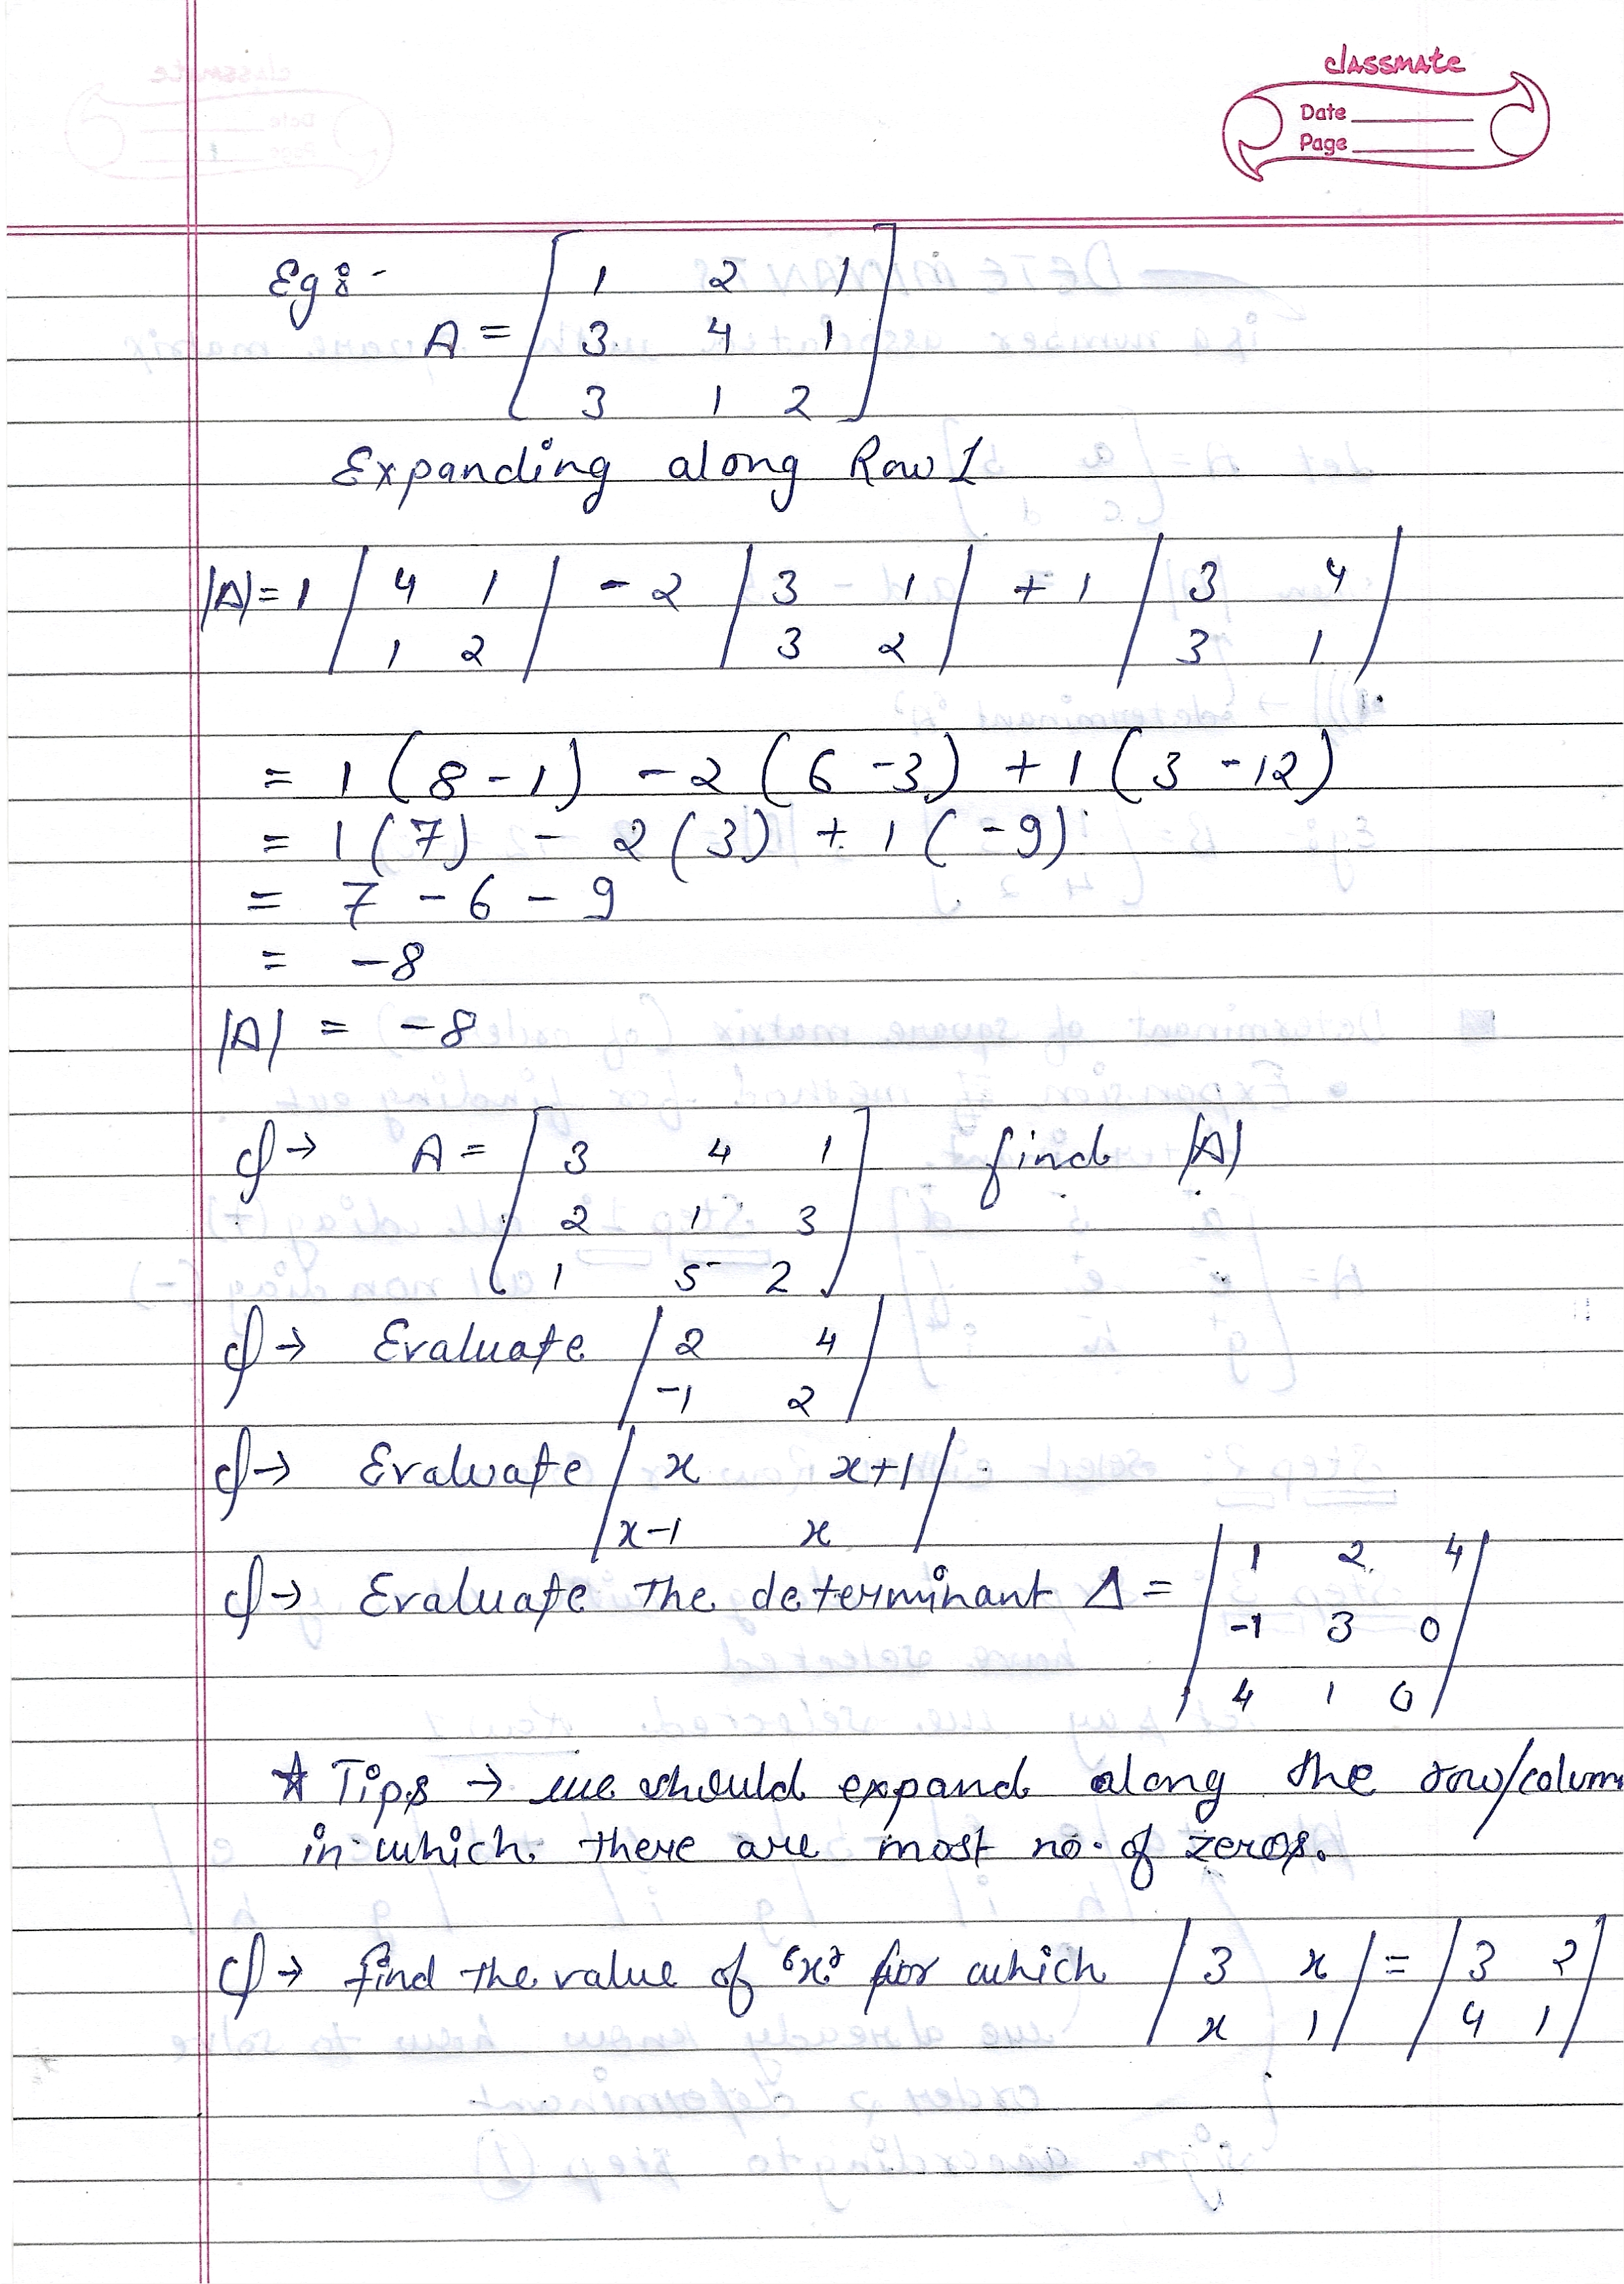 classmate
Date
Page
Eg:-
A = [ 1 2 1
3 4 1
3 1 2 ]
Expanding along Row 1
|A| = 1 | 4 1 | - 2 | 3 1 | + 1 | 3 4 |
| 1 2 | | 3 2 | | 3 1 |
= 1 ( 8 - 1 ) - 2 ( 6 - 3 ) + 1 ( 3 - 12 )
= 1 ( 7 ) - 2 ( 3 ) + 1 ( - 9 )
= 7 - 6 - 9
= - 8
|A| = - 8
Q→ A = [ 3 4 1 find |A|
2 1 3
1 5 2 ]
Q→ Evaluate | 2 4 |
| -1 2 |
Q→ Evaluate | x x+1 |
| x-1 x |
Q→ Evaluate the determinant Δ = | 1 2 4 |
| -1 3 0 |
| 4 1 0 |
☆ Tips → we should expand along the row/colum
in which there are most no. of zeros.
Q→ find the value of 'x' for which | 3 x | = | 3 2 |
| x 1 | | 4 1 |